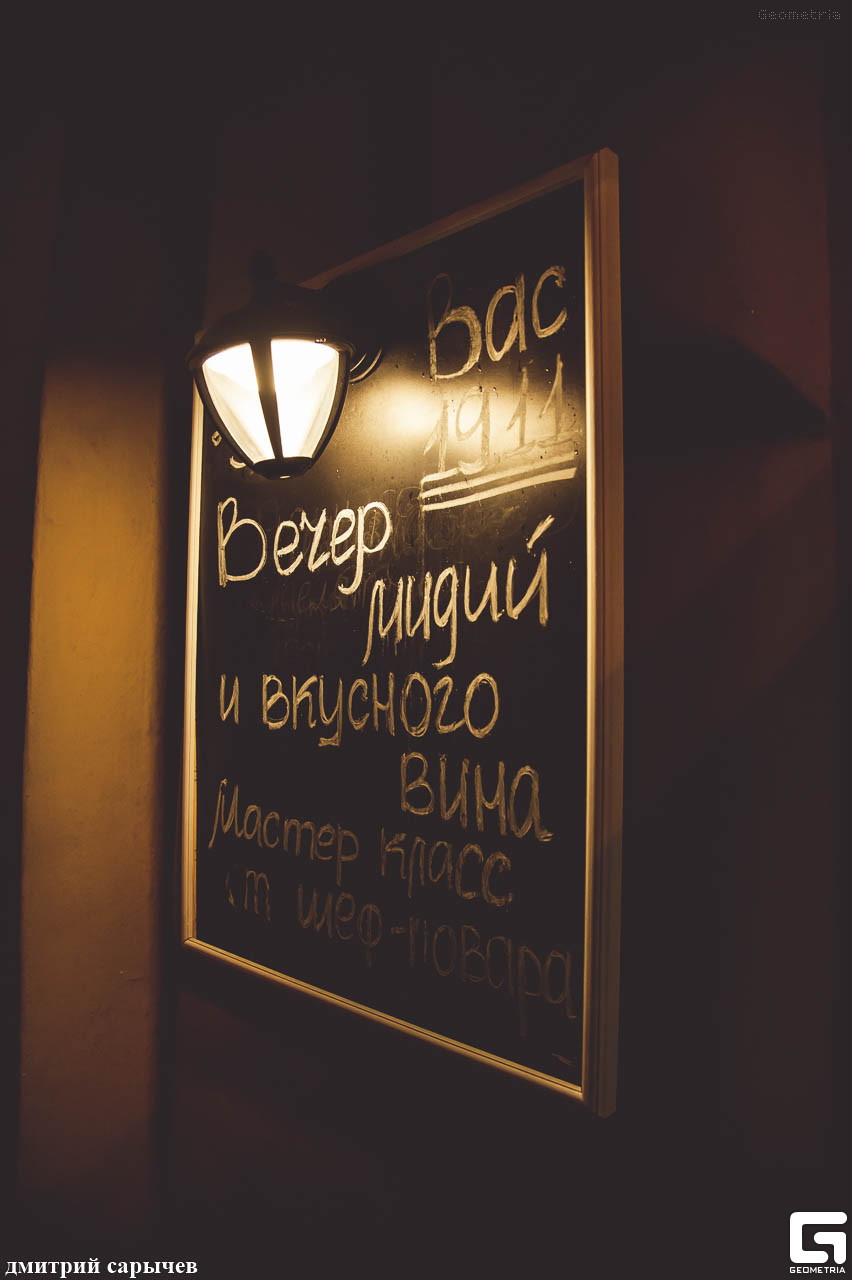 Geometria
Вас
19.11
Вечер
мидий
и вкусного
вина
Мастер класс
от шеф-повара
дмитрий сарычев
GEOMETRIA